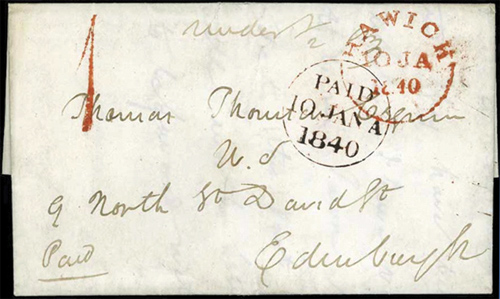 under ½
1
HAWICK
10 JA
1840
PAID
10 JAN A
1840
Thomas
W.S
9 North St David St
Edinburgh
Paid